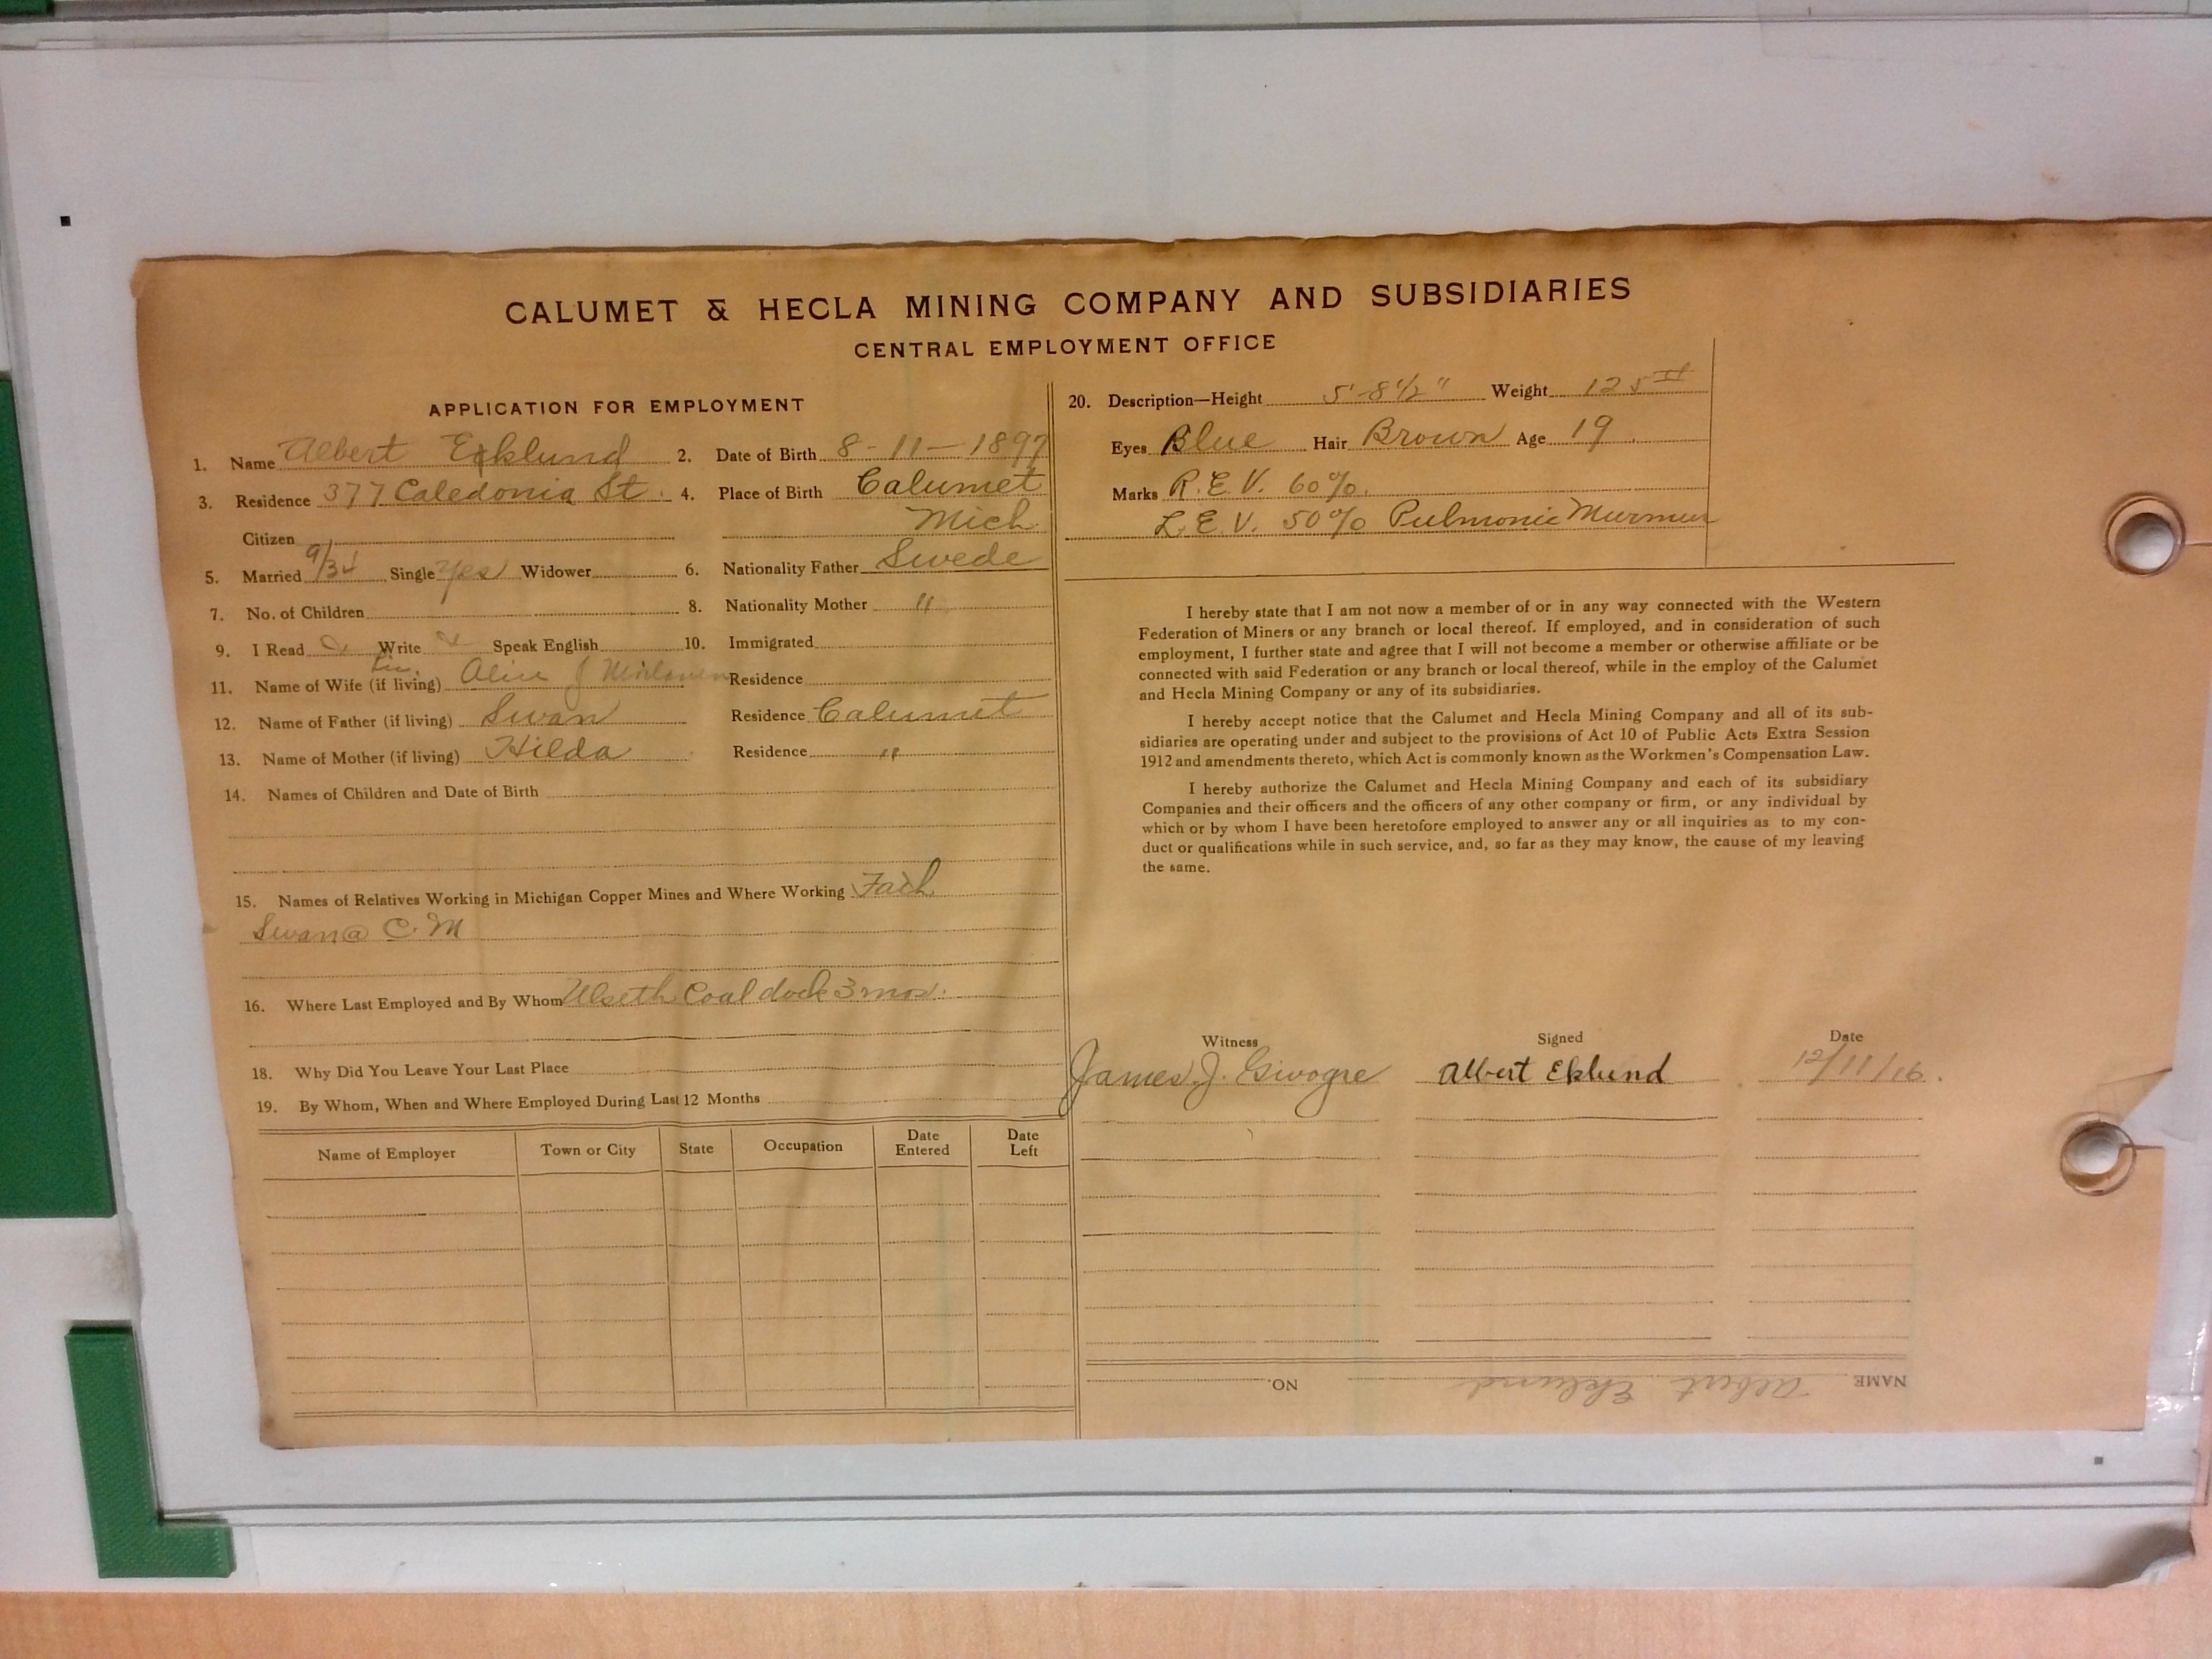 CALUMET & HECLA MINING COMPANY AND SUBSIDIARIES
CENTRAL EMPLOYMENT OFFICE
APPLICATION FOR EMPLOYMENT
1. Name Albert Ecklund 2. Date of Birth 8-11-1897
3. Residence 377 Caledonia St. 4. Place of Birth Calumet
Citizen Mich
5. Married 9/34 Single Yes Widower 6. Nationality Father Swede
7. No. of Children 8. Nationality Mother "
9. I Read Write Speak English 10. Immigrated
11. Name of Wife (if living) Alice J Residence
12. Name of Father (if living) Swan Residence Calumet
13. Name of Mother (if living) Hilda Residence "
14. Names of Children and Date of Birth
15. Names of Relatives Working in Michigan Copper Mines and Where Working Fath
Swan@ C.M
16. Where Last Employed and By Whom Ulseth Coal dock 3 mos.
18. Why Did You Leave Your Last Place
19. By Whom, When and Where Employed During Last 12 Months
Name of Employer Town or City State Occupation Date Entered Date Left
20. Description—Height 5'-8½" Weight 125#
Eyes Blue Hair Brown Age 19
Marks R.E.V. 60%.
L.E.V. 50% Pulmonic Murmur
I hereby state that I am not now a member of or in any way connected with the Western
Federation of Miners or any branch or local thereof. If employed, and in consideration of such
employment, I further state and agree that I will not become a member or otherwise affiliate or be
connected with said Federation or any branch or local thereof, while in the employ of the Calumet
and Hecla Mining Company or any of its subsidiaries.
I hereby accept notice that the Calumet and Hecla Mining Company and all of its sub-
sidiaries are operating under and subject to the provisions of Act 10 of Public Acts Extra Session
1912 and amendments thereto, which Act is commonly known as the Workmen's Compensation Law.
I hereby authorize the Calumet and Hecla Mining Company and each of its subsidiary
Companies and their officers and the officers of any other company or firm, or any individual by
which or by whom I have been heretofore employed to answer any or all inquiries as to my con-
duct or qualifications while in such service, and, so far as they may know, the cause of my leaving
the same.
Witness Signed Date
James J. Albert Eklund 12/11/16.
NAME Albert Eklund NO.